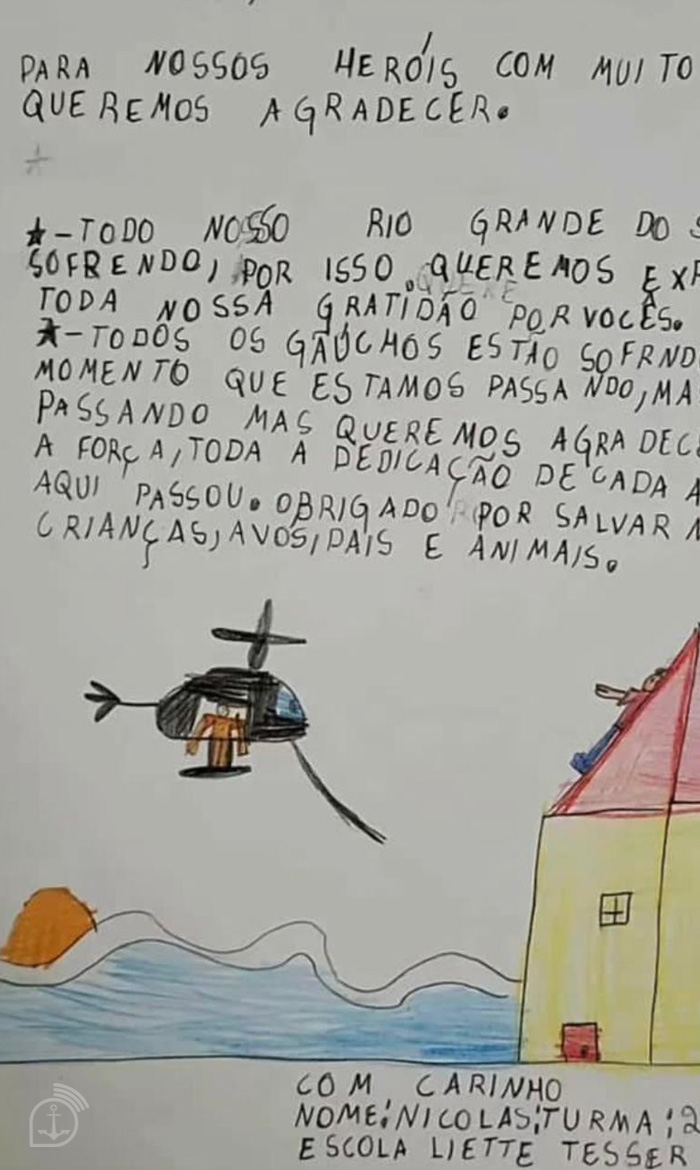 PARA NOSSOS HERÓIS COM MUITO
QUEREMOS AGRADECER.
★-TODO NOSSO RIO GRANDE DO S
SOFRENDO, POR ISSO QUEREMOS EXP
TODA NOSSA GRATIDÃO POR VOCÊS.
★-TODOS OS GAÚCHOS ESTÃO SOFRND
MOMENTO QUE ESTAMOS PASSANDO, MA
PASSANDO MAS QUEREMOS AGRADEC
A FORÇA, TODA A DEDICAÇÃO DE CADA A
AQUI PASSOU. OBRIGADO POR SALVAR
CRIANÇAS, AVÓS, PAIS E ANIMAIS.
COM CARINHO
NOME: NICOLAS; TURMA: 2
ESCOLA LIETTE TESSER